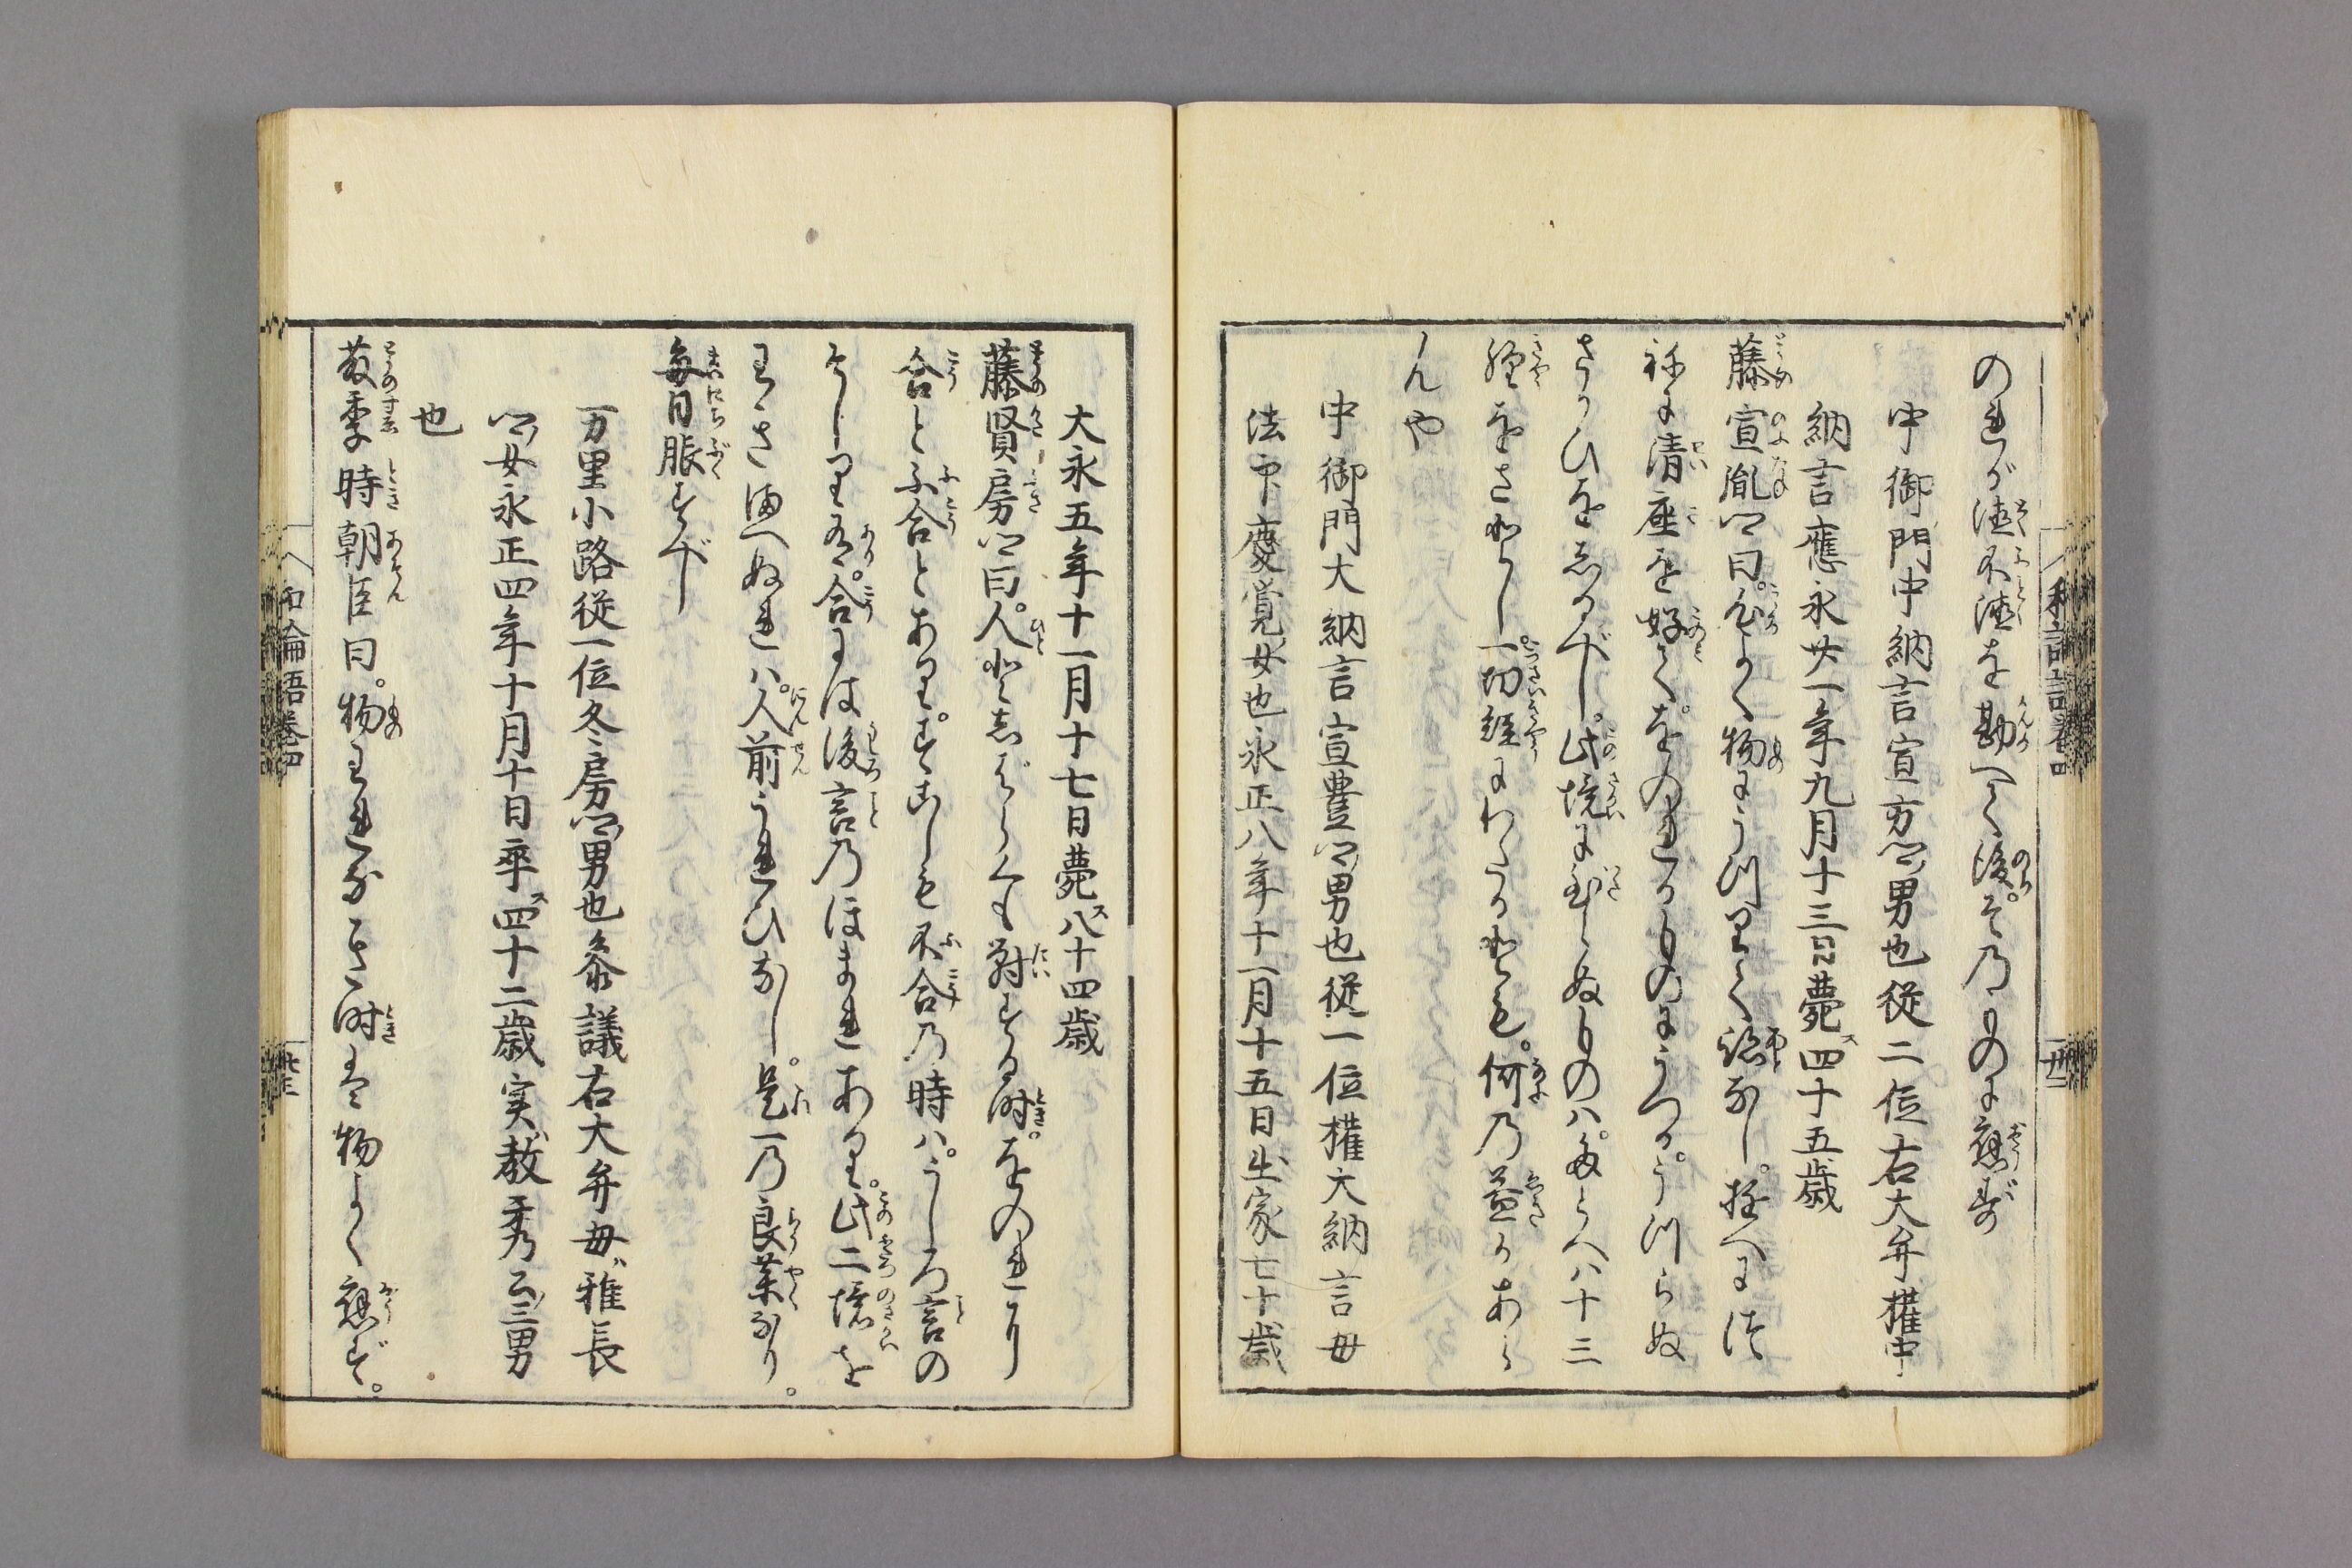 のれが徳不徳を勘へて後。その
中御門中納言宣方卿男也従二位右大弁権中
納言應永廿一年九月十三日薨ス四十五歳
藤宣胤卿曰。心よく物にうつりて
ねに清座を好て。をのれがものにうつる。うつらぬ
さかひをしるべし。此境にいたらぬものハ。たとへハ十三
経をさとし。一切経にわたるとも。何の益かあら
んや
中御門大納言宣豊卿男也従一位権大納言母
法印慶覚女也永正八年十一月十五日出家七十歳
大永五年十一月十七日薨ス八十四歳
藤賢房卿曰。人としばらくも對する時。をのれより
合とふ合とあり。すこしも不合の時ハ。うしろ言の
そしり有。合には後言のほまれあり。此二境を
わきまへぬれハ。人前うれひなし。是一の良薬なり。
毎日服すべし
万里小路従一位冬房卿男也参議右大弁母ハ雅長
卿女永正四年十月十日卒ス四十二歳実ハ教秀公三男
也
藤季時朝臣曰。物われなき時は物よく應ず。
和論語巻四